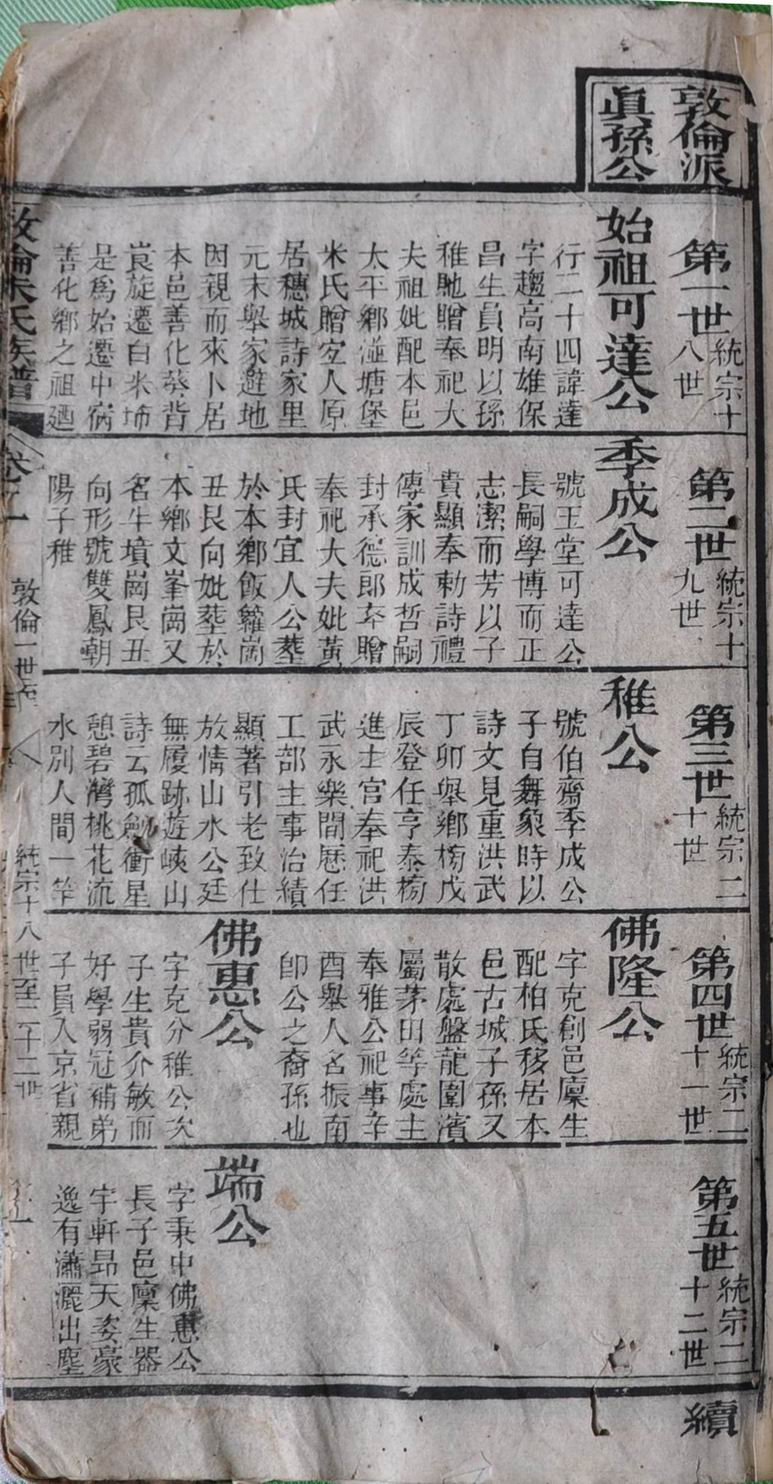 敦倫派
眞孫公
第一世
統宗十
八世
始祖可達公
行二十四諱達
字趨高南雄保
昌生員明以孫
稚馳贈奉祀大
夫祖妣配本邑
太平鄉湴塘堡
米氏贈宜人原
居穗城詩家里
元末舉家遊地
因親而來卜居
本邑善化葵背
崀旋遷白米㘵
是為始遷中𡶶
善化鄉之祖廼
第二世
統宗十
九世
季成公
號玉堂可達公
長嗣學博而正
志潔而芳以子
貴顯奉勅詩禮
傳家訓成哲嗣
封承德郎卒贈
奉祀大夫妣黃
氏封宜人公塟
於本鄉飯籮崗
丑艮向妣塟於
本鄉文峯崗又
名牛墳崗艮丑
向形號雙鳳朝
陽子稚
第三世
統宗二
十世
稚公
號伯齋季成公
子自舞象時以
詩文見重洪武
丁卯舉鄉榜戊
辰登任亨泰榜
進士官奉祀洪
武永樂間歷任
工部主事治績
顯著引老致仕
放情山水公廷
無履跡遊峽山
詩云孤劍衝星
憩碧灣桃花流
水別人間一竿
第四世
統宗二
十一世
佛隆公
字克創邑廩生
配柏氏移居本
邑古城子孫又
散處盤龍圍濱
屬茅田等處主
奉雅公祀事辛
酉舉人名振南
卽公之裔孫也
佛惠公
字克分稚公次
子生貴介敏而
好學弱冠補弟
子員入京省親
第五世
統宗二
十二世
端公
字秉中佛惠公
長子邑廩生器
宇軒昂天姿豪
逸有瀟灑出塵
續
敦倫朱氏族譜
卷之一
敦倫一世至
統宗十八世至二十二世